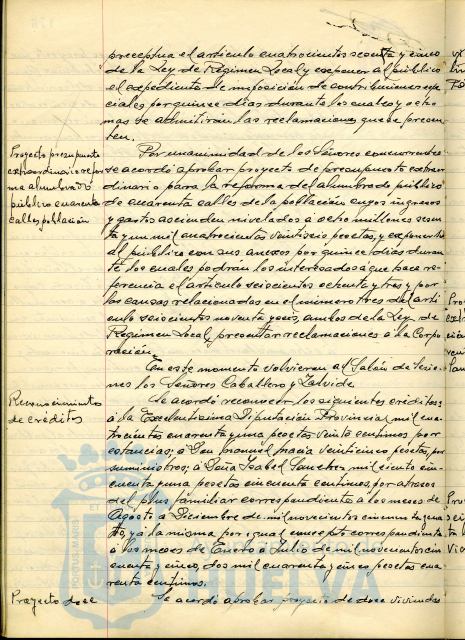 preceptua el artículo cuatrocientos sesenta y cinco
de la Ley de Régimen Local y exponer al público
el expediente de imposición de contribuciones espe-
ciales por quince días durante los cuales y ocho
mas se admitirán las reclamaciones que se presen-
ten.
Proyecto presupuesto
extraordinario refor-
ma alumbrado
público cuarenta
calles población
Por unanimidad de los Señores concurrentes
se acordó aprobar proyecto de presupuesto extraor-
dinario para la reforma del alumbrado público
de cuarenta calles de la población cuyos ingresos
y gastos ascienden nivelados a ocho millones sesen-
ta y un mil cuatrocientas veintiseis pesetas, y exponerlo
al público con sus anexos por quince días duran-
te los cuales podrán los interesados a que hace re-
ferencia el artículo seiscientos ochenta y tres y por
las causas relacionadas en el número tres del artí-
culo seiscientos noventa y seis, ambos de la Ley de
Régimen Local, presentar reclamaciones a la Corpo-
ración.
En este momento volvieron al Salón de Sesio-
nes los Señores Caballero y Zalvide.
Reconocimientos
de créditos
Se acordó reconocer los siguientes créditos:
a la Excelentísima Diputación Provincial mil cua-
trocientas cuarenta y una pesetas veinte centimos por
estancias; a Don Manuel Macia veinticinco pesetas, por
suministros; a Doña Isabel Sanchez mil ciento cin-
cuenta y una pesetas cincuenta centimos por atrasos
del plus familiar correspondiente a los meses de
Agosto a Diciembre de mil novecientos cincuenta y cua-
tro, y a la misma por igual concepto correspondiente
a los meses de Enero a Julio de mil novecientos cin-
cuenta y cinco, dos mil cuarenta y cinco pesetas cua-
renta centimos.
Proyecto doce
Se acordó aprobar proyecto de doce viviendas
HUELVA
PORTUS MARIS